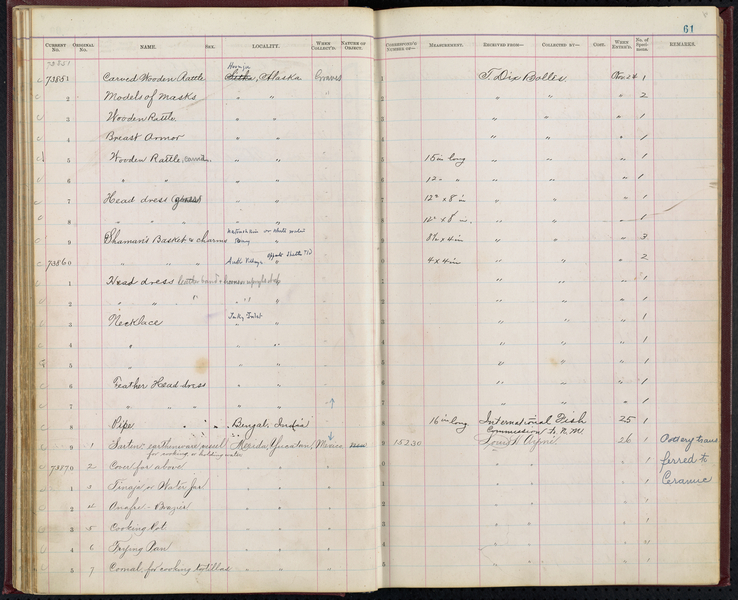 61
CURRENT No. ORIGINAL No. NAME. SEX. LOCALITY. WHEN COLLECT'D. NATURE OF OBJECT. CORRESPOND'G NUMBER OF— MEASUREMENT. RECEIVED FROM— COLLECTED BY— COST. WHEN ENTER'D. No. of Speci-mens. REMARKS.
73851
73851 Carved Wooden Rattle Hoonjia Sitka, Alaska Graves 1 T. Dix Bolles. Nov 24 1
2 Models of Masks " " " 2 " " " 2
3 Wooden Rattle " " 3 " " " 1
4 Breast Armor " " 4 " " " 1
5 Wooden Rattle, " " 5 15 in long " " " 1
6 " " " " 6 12 " " " " " 1
7 Head dress " " 7 12" x 8 in " " " 1
8 " " " " 8 12" x 8 in. " " " 1
9 Shaman's Basket & charms 9 8½ x 4 in " " " 3
73860 " " " Village 0 4 x 4 in " " " 2
1 Head dress leather band & 1 " " " 1
2 " " " " 2 " " " 1
3 Necklace Inlet 3 " " " 1
4 " " " 4 " " " 1
5 " " " 5 " " " 1
6 Feather Head dress " " 6 " " " 1
7 " " " " " 7 " " " 1
8 Pipe " " Bengal, India 8 16 in long International Fish 25 1
Commission to N. M.
9 1 earthenware vessel Merida, Yucatan, Mexico 9 15230 Louis H. Aymé 26 1 Pottery trans
for cooking or holding water
73870 2 Cover for above " " " 0 " " " 1 ferred to
1 3 Tinaja or Water Jar " " " 1 " " " 1 Ceramic
2 4 Anafre - Brazier " " " 2 " " " 1
3 5 Cooking Pot " " " 3 " " " 1
4 6 Frying Pan " " " 4 " "
5 7 Comal, for cooking tortillas " " 5 " " 1